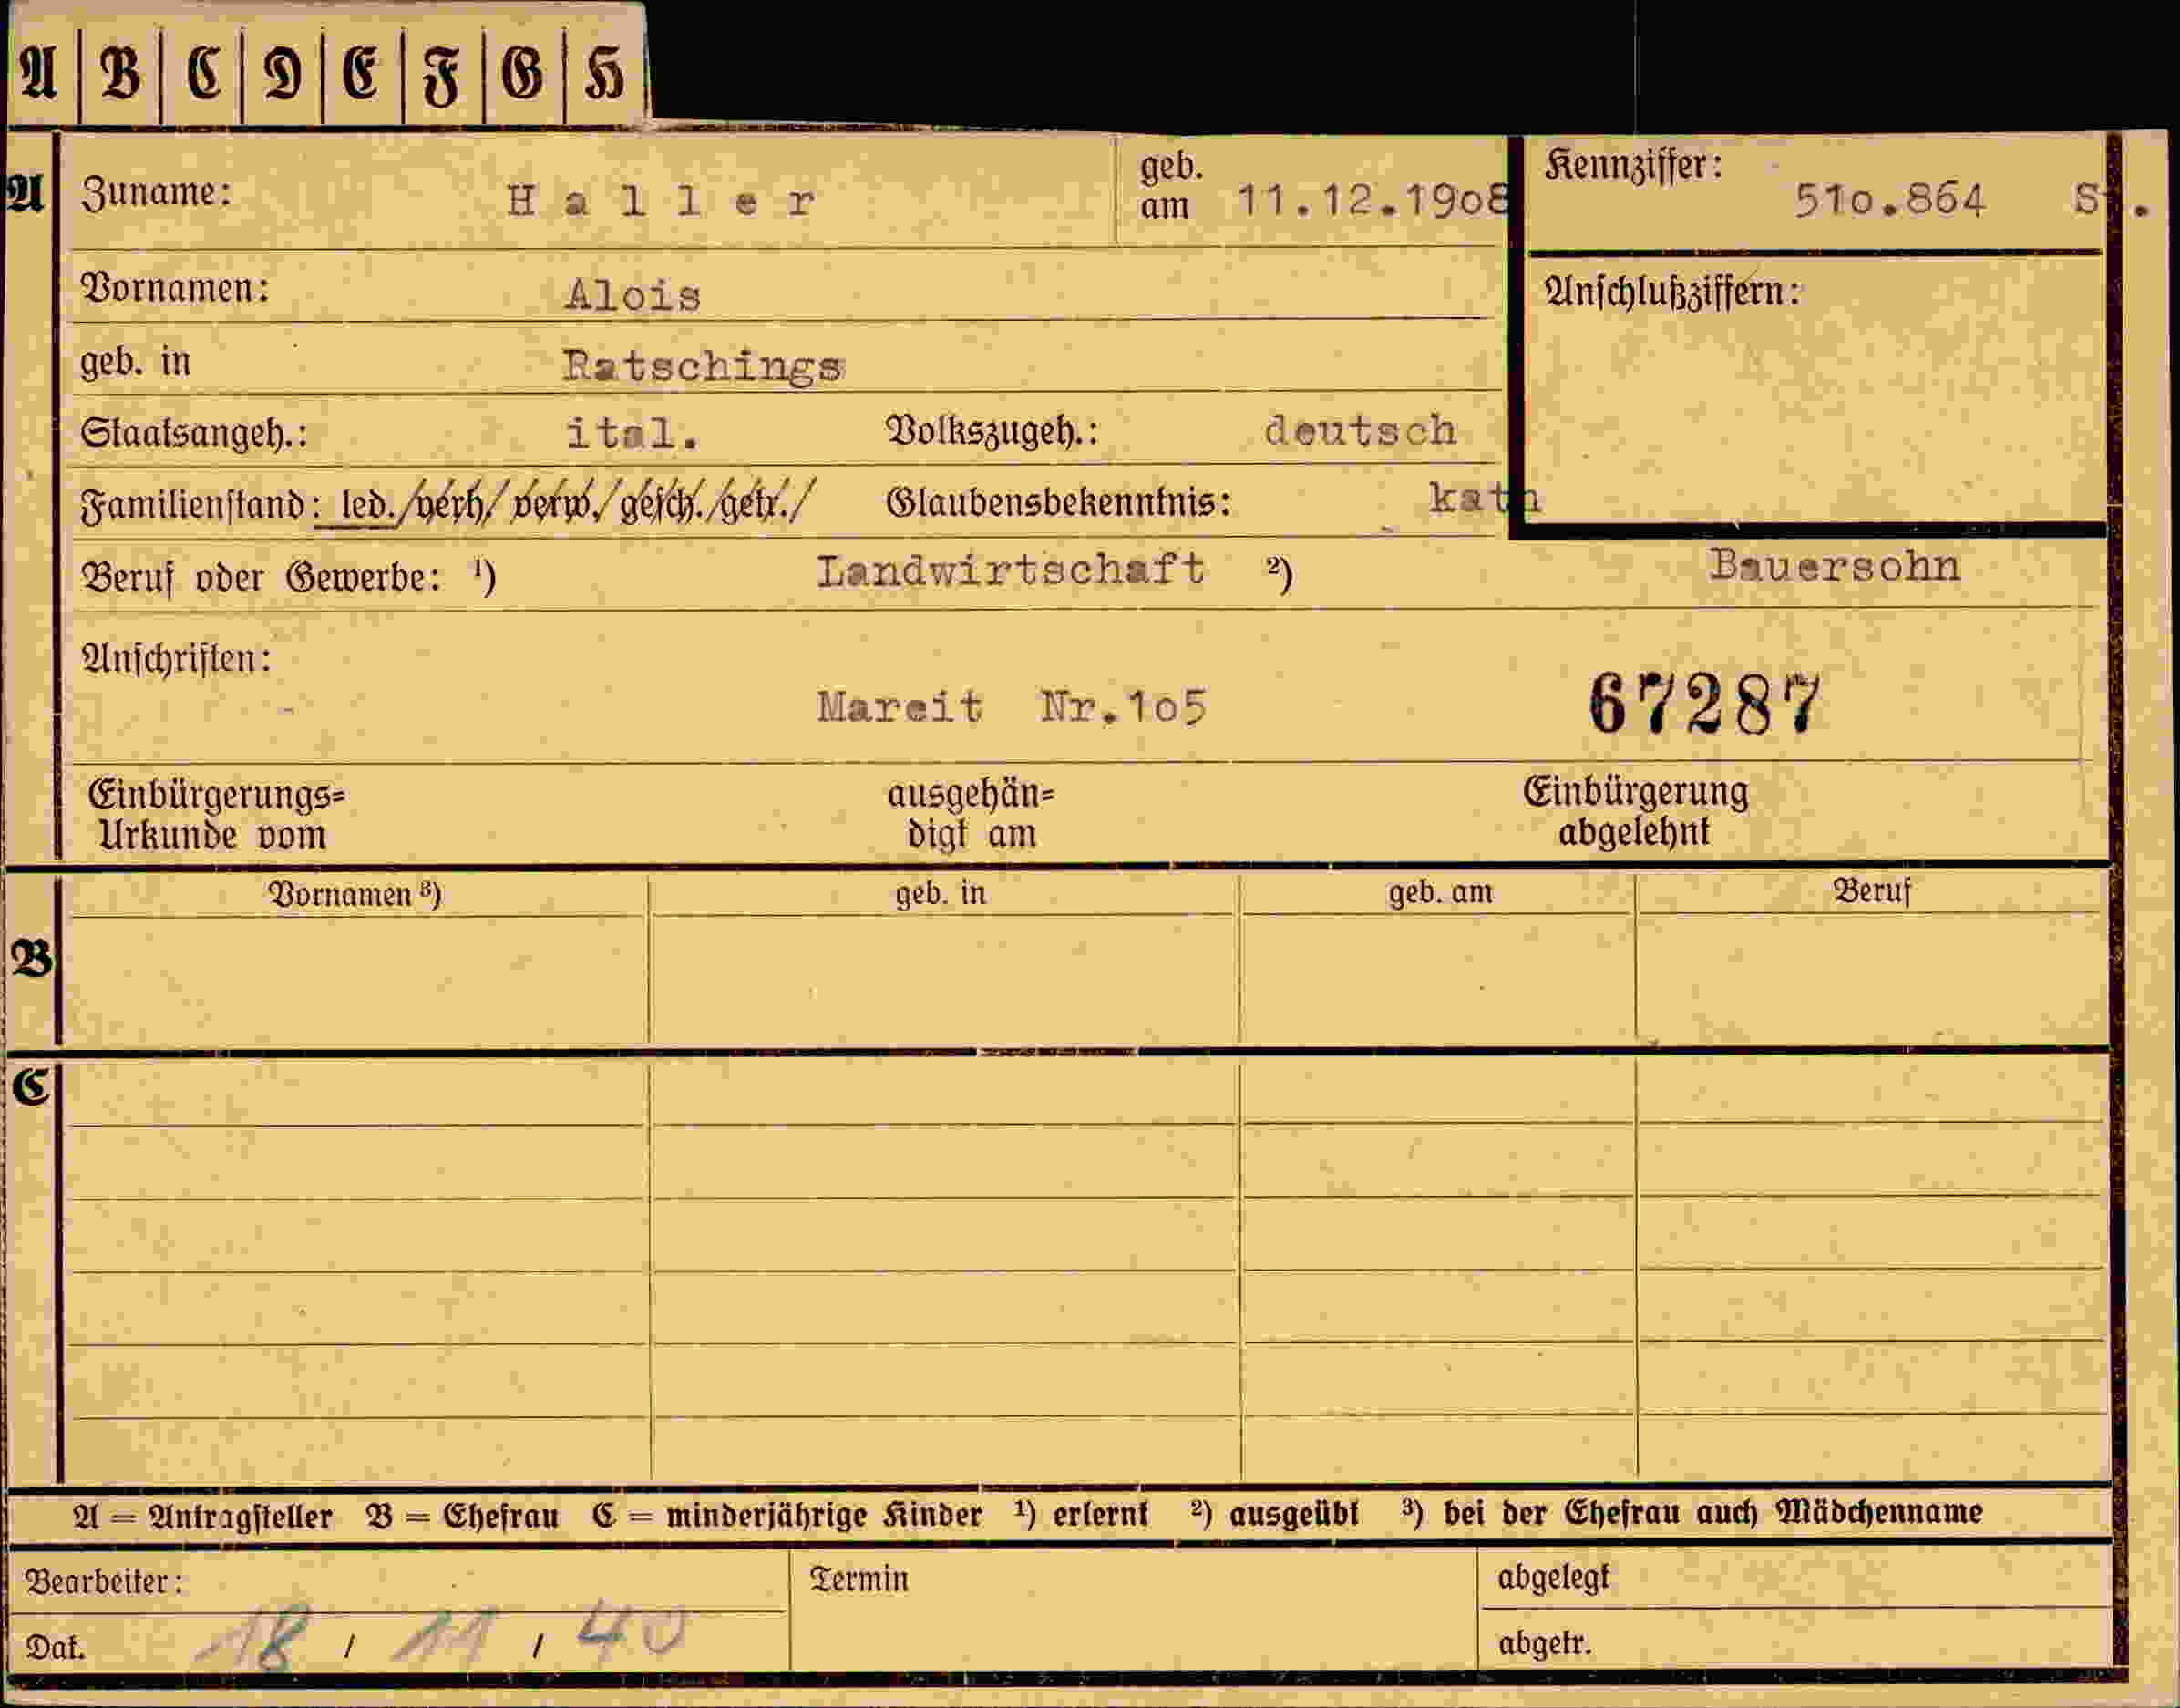 A B C D E F G H
A Zuname: Haller geb. am 11.12.1908 Kennziffer: 510.864 St.
Vornamen: Alois Anschlußziffern:
geb. in Ratschings
Staatsangeh.: ital. Volkszugeh.: deutsch
Familienstand: led./verh/verw./gesch./getr./ Glaubensbekenntnis: kath
Beruf oder Gewerbe: ¹) Landwirtschaft ²) Bauersohn
Anschriften:
Mareit Nr.105 67287
Einbürgerungs= ausgehän= Einbürgerung
Urkunde vom digt am abgelehnt
Vornamen ³) geb. in geb. am Beruf
B
C
A = Antragsteller B = Ehefrau C = minderjährige Kinder ¹) erlernt ²) ausgeübt ³) bei der Ehefrau auch Mädchenname
Bearbeiter: Termin abgelegt
Dat. 18 / 11 / 40 abgetr.